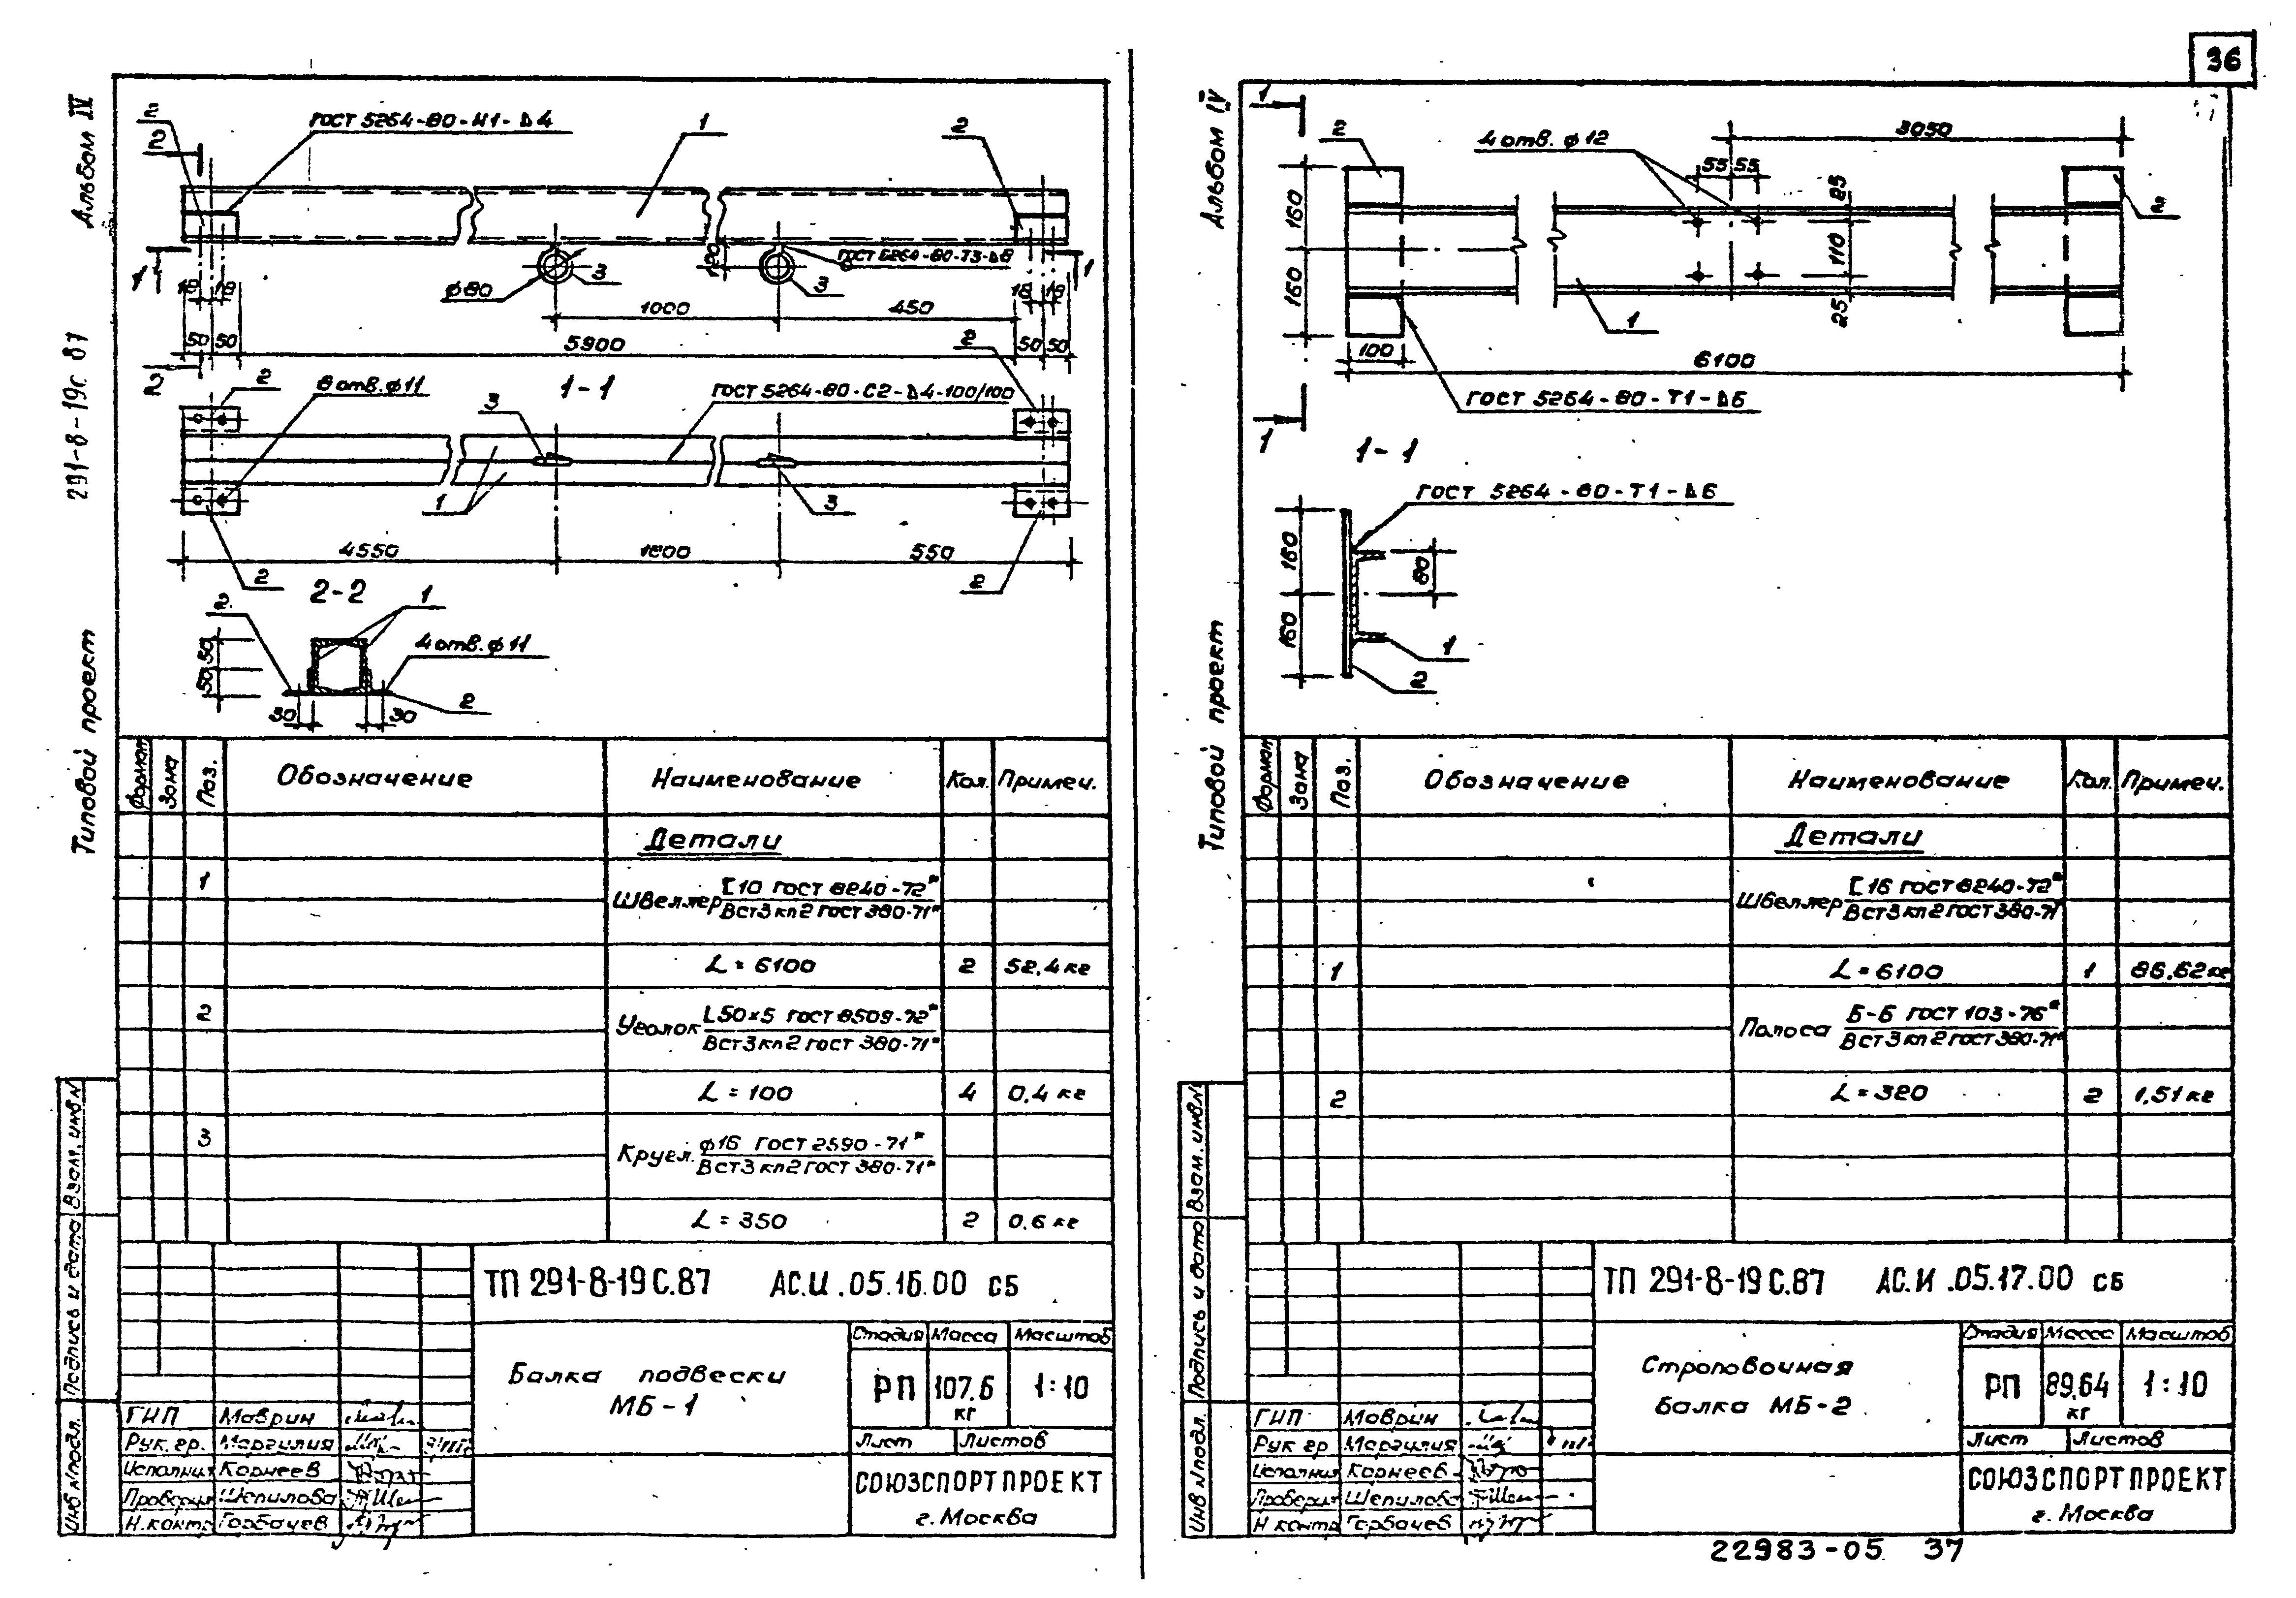 36
Альбом IV
291-8-19с. 87
Типовой проект
2
2
ГОСТ 5264-80-Н1-Δ4
1
2
1
ГОСТ 5264-80-Т3-Δ6
1
120
3
3
φ80
18 18
18 18
1000
450
50 50
5900
50 50
2
1-1
2
2
8 отв. φ11
3
ГОСТ 5264-80-С2-Δ4-100/100
1
3
4550
1000
550
2
2-2
2
2
1
4 отв. φ11
50
50
30
30
2
Формат
Зона
Поз.
Обозначение
Наименование
Кол.
Примеч.
Детали
1
Швеллер [10 ГОСТ 8240-72*
ВСт3кп2 ГОСТ 380-71*
L = 6100 2 52,4 кг
2
Уголок L50×5 ГОСТ 8509-72*
ВСт3кп2 ГОСТ 380-71*
L = 100 4 0,4 кг
3
Кругл. φ16 ГОСТ 2590-71*
ВСт3кп2 ГОСТ 380-71*
L = 350 2 0,6 кг
Взам. инв N
Подпись и дата
Инв N подл.
ТП 291-8-19С.87 АС.И.05.16.00 СБ
Балка подвески
МБ-1
Стадия Масса Масштаб
РП 107,6 кг 1:10
Лист Листов
ГИП Маврин
Рук. гр. Маргулия
Исполнил Корнеев
Проверил Шепилова
Н. контр Горбачев
СОЮЗСПОРТПРОЕКТ
г. Москва
Альбом IV
Типовой проект
1
2
4 отв. φ12
3050
55 55
25
160
110
160
25
2
1
100
6100
ГОСТ 5264-80-Т1-Δ6
1
1-1
ГОСТ 5264-80-Т1-Δ6
160
80
160
1
2
Формат
Зона
Поз.
Обозначение
Наименование
Кол.
Примеч.
Детали
Швеллер [16 ГОСТ 8240-72*
ВСт3кп2 ГОСТ 380-71*
1 L = 6100 1 86,62 кг
Полоса Б-6 ГОСТ 103-76*
ВСт3кп2 ГОСТ 380-71*
2 L = 320 2 1,51 кг
Взам. инв N
Подпись и дата
Инв N подл.
ТП 291-8-19С.87 АС.И.05.17.00 СБ
Строповочная
балка МБ-2
Стадия Масса Масштаб
РП 89,64 кг 1:10
Лист Листов
ГИП Маврин
Рук гр Маргулия
Исполнил Корнеев
Проверил Шепилова
Н контр Горбачев
СОЮЗСПОРТПРОЕКТ
г. Москва
22983-05 37